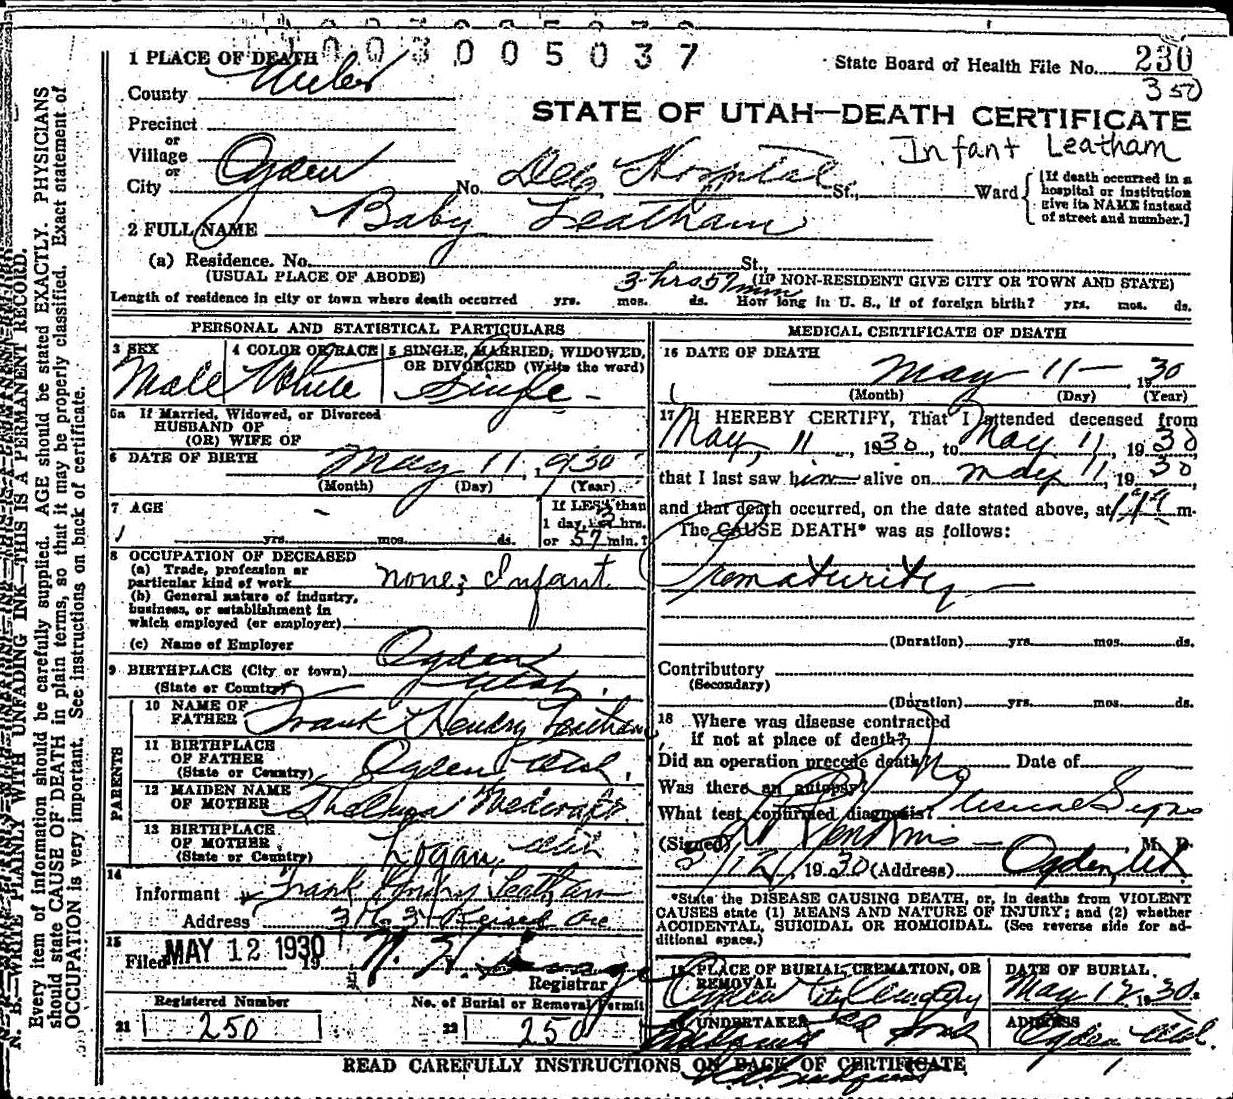 003005037
1 PLACE OF DEATH
State Board of Health File No. 230
350
County Weber
STATE OF UTAH—DEATH CERTIFICATE
Precinct
or
Village
or
Infant Leatham
City Ogden No. Dee Hospital St., Ward
[If death occurred in a hospital or institution give its NAME instead of street and number.]
2 FULL NAME Baby Leatham
(a) Residence. No. St.,
(USUAL PLACE OF ABODE) (IF NON-RESIDENT GIVE CITY OR TOWN AND STATE)
3 hrs 57 min
Length of residence in city or town where death occurred yrs. mos. ds. How long in U. S., if of foreign birth? yrs. mos. ds.
PERSONAL AND STATISTICAL PARTICULARS
3 SEX Male
4 COLOR OR RACE White
5 SINGLE, MARRIED, WIDOWED, OR DIVORCED (Write the word) Single
5a If Married, Widowed, or Divorced
HUSBAND OF
(OR) WIFE OF
6 DATE OF BIRTH May 11, 1930
(Month) (Day) (Year)
7 AGE yrs. mos. ds.
If LESS than
1 day, 3 hrs.
or 57 min.?
8 OCCUPATION OF DECEASED
(a) Trade, profession or
particular kind of work none; Infant
(b) General nature of industry,
business, or establishment in
which employed (or employer)
(c) Name of Employer
9 BIRTHPLACE (City or town) Ogden
(State or Country) Utah.
PARENTS
10 NAME OF
FATHER Frank Hendry Leatham
11 BIRTHPLACE
OF FATHER
(State or Country) Ogden Utah,
12 MAIDEN NAME
OF MOTHER Thelma
13 BIRTHPLACE
OF MOTHER
(State or Country) Logan, Utah
14
Informant Frank Hendry Leatham
Address
15
Filed MAY 12 1930 19
Registrar
Registered Number
21 250
No. of Burial or Removal Permit
22 250
MEDICAL CERTIFICATE OF DEATH
16 DATE OF DEATH
May 11 — 1930
(Month) (Day) (Year)
17 I HEREBY CERTIFY, That I attended deceased from
May, 11, 1930, to May 11, 1930
that I last saw him alive on May 11, 1930,
and that death occurred, on the date stated above, at m.
The CAUSE DEATH* was as follows:
Prematurity
(Duration) yrs. mos. ds.
Contributory
(Secondary)
(Duration) yrs. mos. ds.
18 Where was disease contracted
if not at place of death?
Did an operation precede death? No Date of
Was there an autopsy?
What test confirmed diagnosis? Signs
(Signed) M. D.
5/12/, 1930 (Address) Ogden, Ut.
*State the DISEASE CAUSING DEATH, or, in deaths from VIOLENT
CAUSES state (1) MEANS AND NATURE OF INJURY; and (2) whether
ACCIDENTAL, SUICIDAL OR HOMICIDAL. (See reverse side for ad-
ditional space.)
19 PLACE OF BURIAL, CREMATION, OR
REMOVAL
Ogden City Cemetery
DATE OF BURIAL
May 12, 1930.
20 UNDERTAKER
ADDRESS
Ogden Utah.
READ CAREFULLY INSTRUCTIONS ON BACK OF CERTIFICATE
N. B.—WRITE PLAINLY WITH UNFADING INK—THIS IS A PERMANENT RECORD.
Every item of information should be carefully supplied. AGE should be stated EXACTLY. PHYSICIANS
should state CAUSE OF DEATH in plain terms, so that it may be properly classified. Exact statement of
OCCUPATION is very important. See instructions on back of certificate.